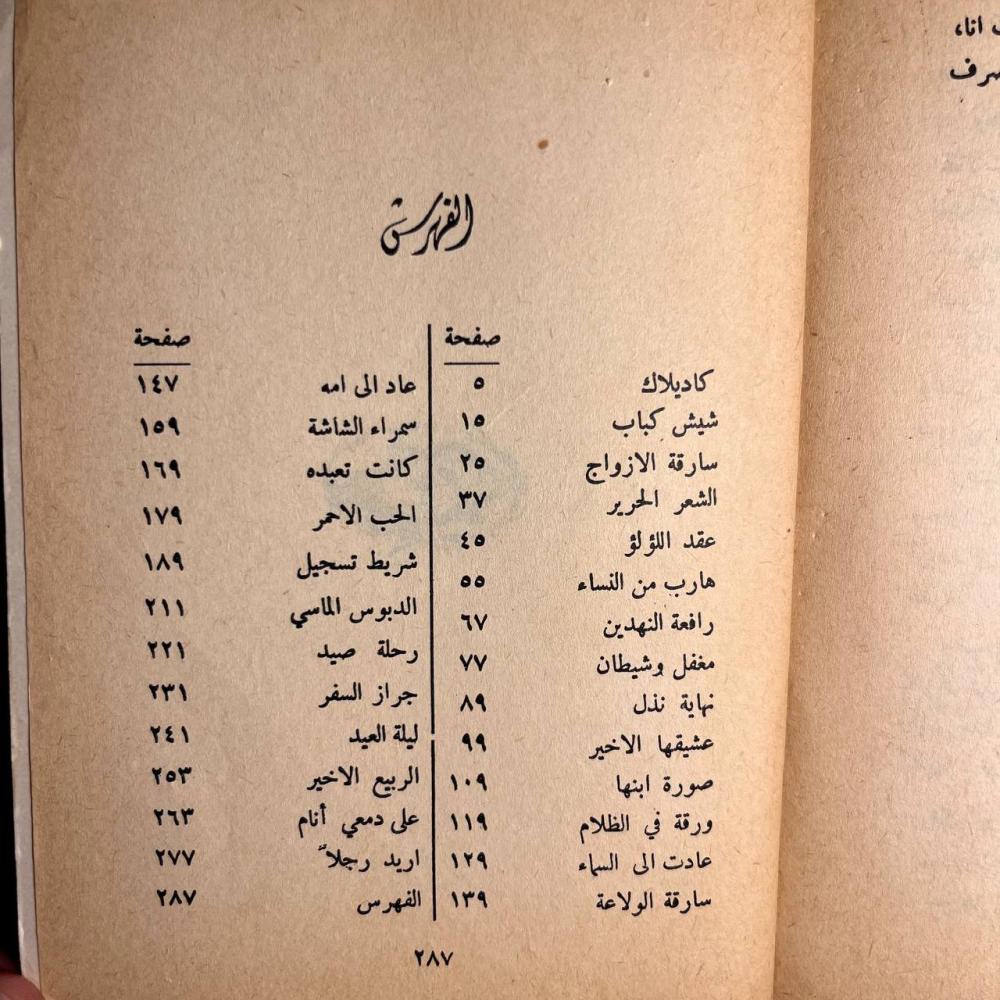 الفهرس
صفحة
كاديلاك ٥
شيش كباب ١٥
سارقة الازواج ٢٥
الشعر الحرير ٣٧
عقد اللؤلؤ ٤٥
هارب من النساء ٥٥
رافعة النهدين ٦٧
مغفل وشيطان ٧٧
نهاية نذل ٨٩
عشيقها الاخير ٩٩
صورة ابنها ١٠٩
ورقة في الظلام ١١٩
عادت الى السماء ١٢٩
سارقة الولاعة ١٣٩
صفحة
عاد الى امه ١٤٧
سمراء الشاشة ١٥٩
كانت تعبده ١٦٩
الحب الاحمر ١٧٩
شريط تسجيل ١٨٩
الدبوس الماسي ٢١١
رحلة صيد ٢٢١
جراز السفر ٢٣١
ليلة العيد ٢٤١
الربيع الاخير ٢٥٣
على دمعي أنام ٢٦٣
اريد رجلاً ٢٧٧
الفهرس ٢٨٧
٢٨٧
انا،